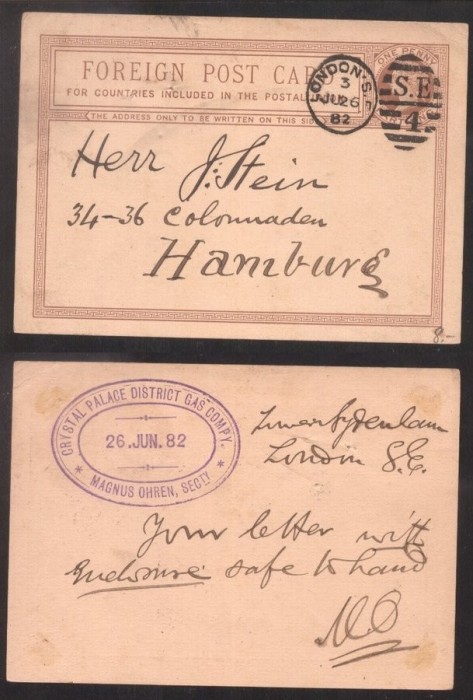 FOREIGN POST CAR
FOR COUNTRIES INCLUDED IN THE POSTAL
THE ADDRESS ONLY TO BE WRITTEN ON THIS SIDE
ONE PENNY
LONDON·S.E
3
JU26
82
S.E
4
Herr J. Stein
34-36 Colonnaden
Hamburg
8.-
CRYSTAL PALACE DISTRICT GAS COMPY.
26.JUN.82
MAGNUS OHREN, SECTY
Lower Sydenham
London S.E.
Your letter with
Enclosure safe to hand
M.O